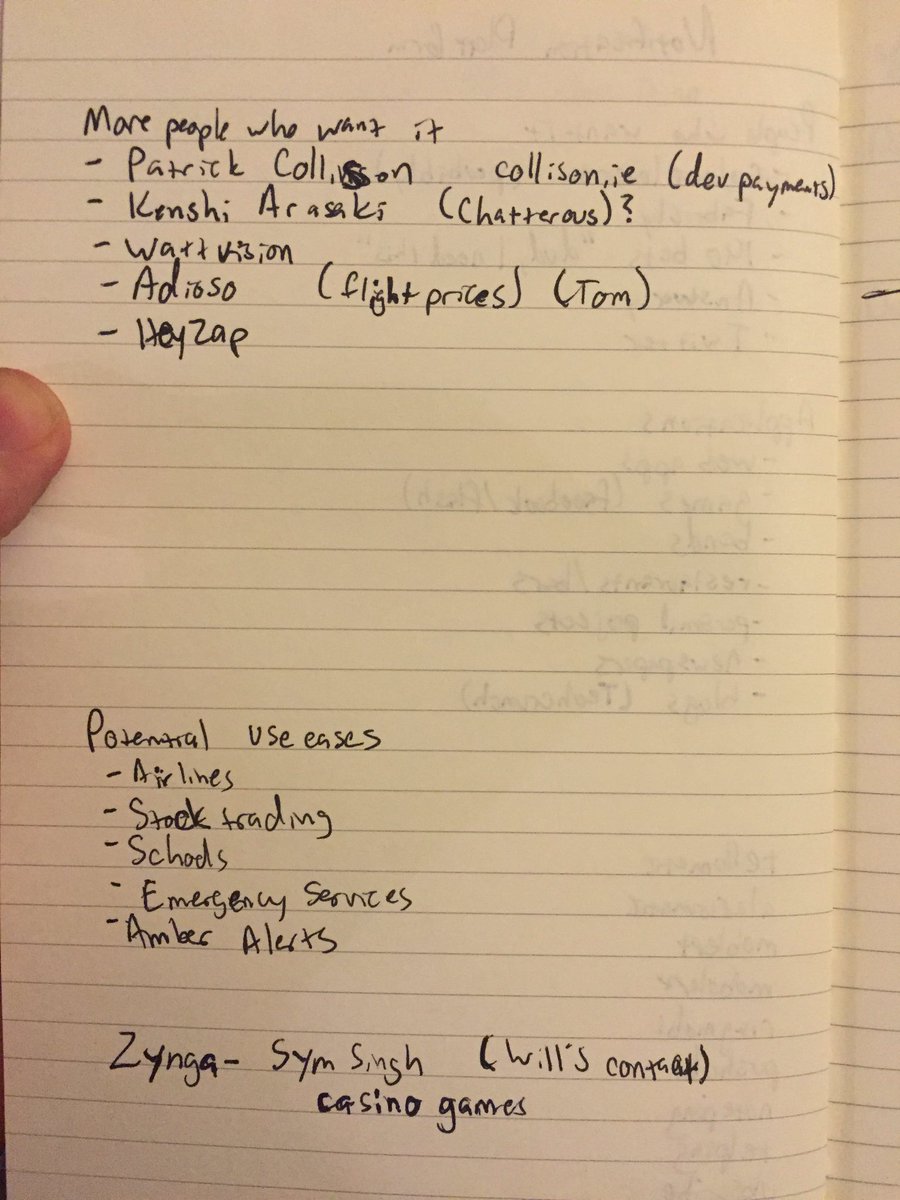 More people who want it
- Patrick Collison collison.ie (dev payments)
- Kenshi Arasaki (Chatterous)?
- Wattvision
- Adioso (flight prices) (Tom)
- HeyZap
Potential use cases
- Airlines
- Stock trading
- Schools
- Emergency Services
- Amber Alerts
Zynga - Sym Singh (Will's contact)
casino games